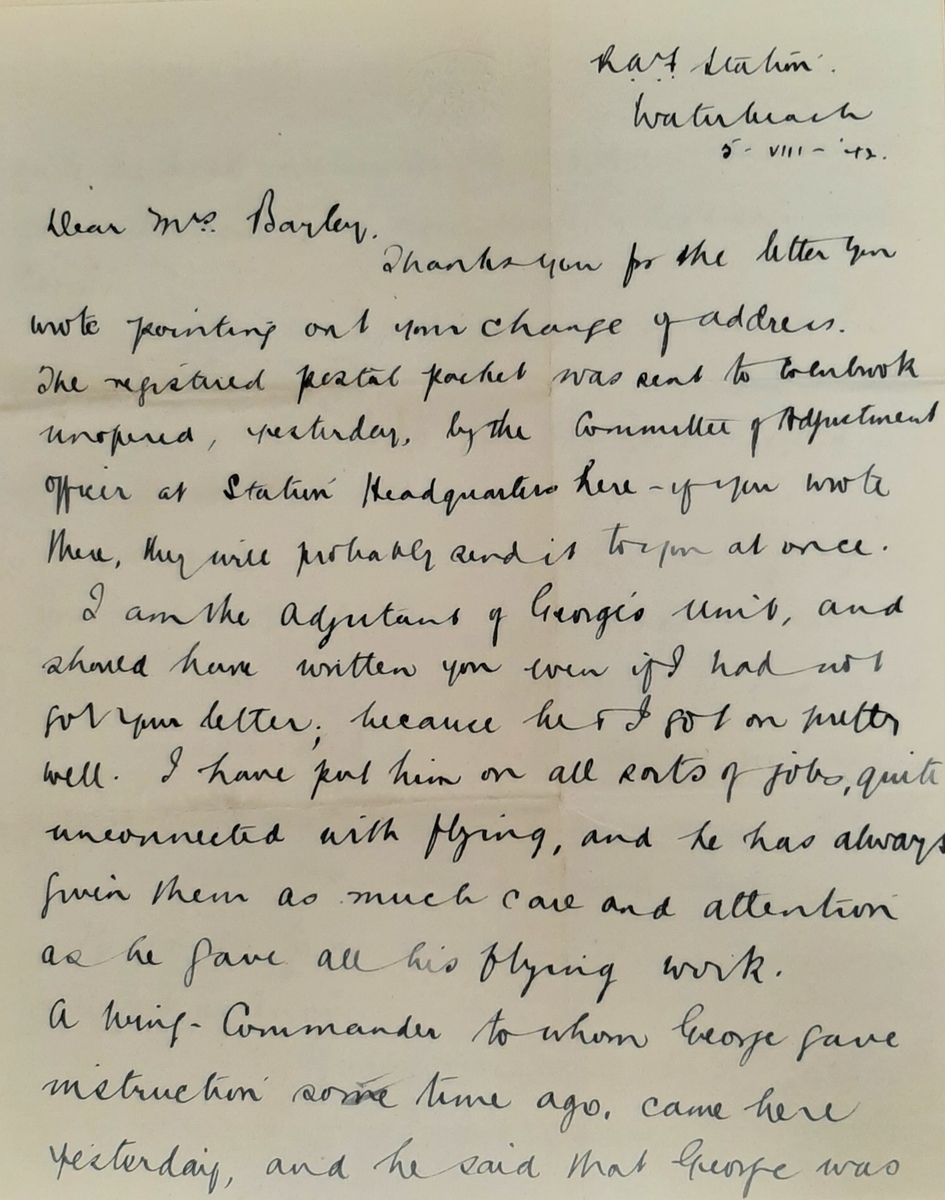 R.A.F Station.
Waterbeach
5 - VIII - '42.
Dear Mrs. Bayley,
Thank you for the letter you
wrote pointing out your change of address.
The registered postal packet was sent to Colnbrook
unopened, yesterday, by the Committee of Adjustment
Officer at Station Headquarters here - if you wrote
there, they will probably send it to you at once.
I am the Adjutant of George's unit, and
should have written you even if I had not
got your letter; because he & I got on pretty
well. I have put him on all sorts of jobs, quite
unconnected with flying, and he has always
given them as much care and attention
as he gave all his flying work.
A Wing-Commander to whom George gave
instruction some time ago, came here
yesterday, and he said that George was